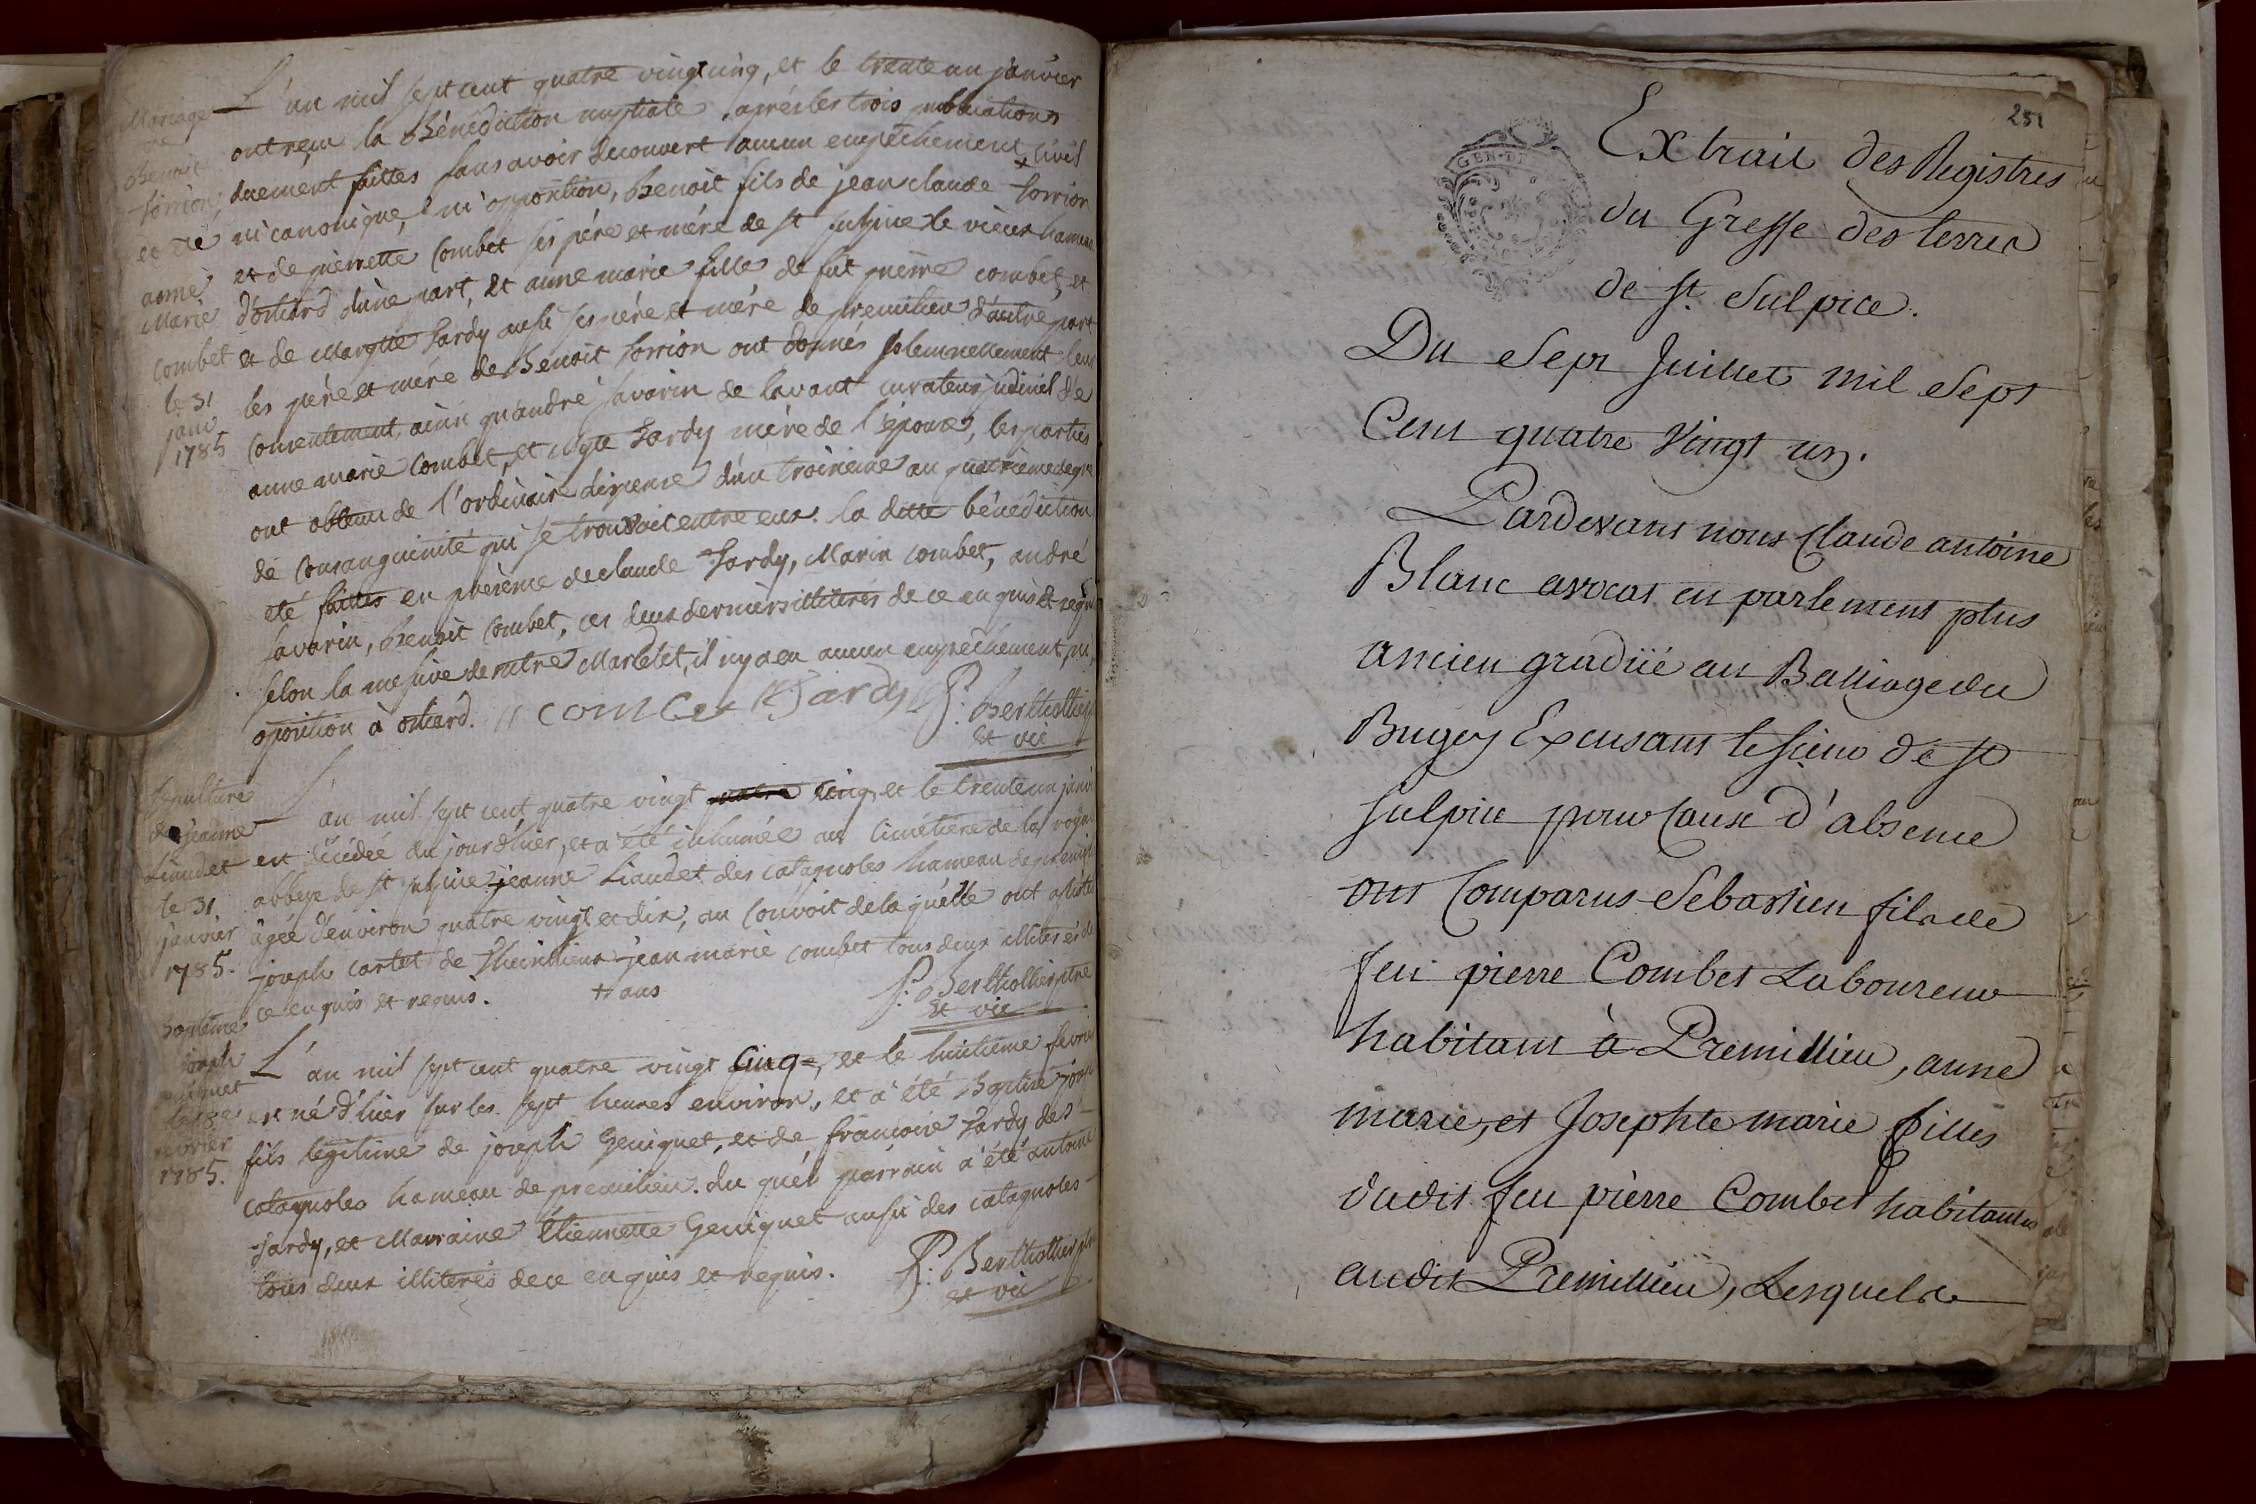 Mariage
de
Benoit
forrion,
et de
anne
Marie
Combet
le 31
janv
1785
L'an mil sept cent quatre vingt cinq, et le trente un janvier
ont reçu la Bénédiction nuptiale, après les trois publications
duement faittes sans avoir decouvert aucun empêchement civil
ni canonique, ni opposition, Benoit fils de jean claude forrion
et de pierrette Combet ses père et mère de st sulpice le vieux hameau
d'ontiard d'une part, Et anne marie fille de fut pierre combet, et
et de Margtte Jardy aussi ses père et mère de premilieu d'autre part
les père et mère de Benoit forrion ont donnés solemnellement leur
Consentement, ainsi qu'andré savarin de lavant curateur judiciel de
anne marie Combet, et Mgte Jardy mère de l'épouse, les parties
ont obtenu de l'ordinaire dispense d'un troisième au quatrième degré
de Consanguinité qui se trouvait entre eux. la ditte bénédiction
été faittes en présence de claude Jardy, Marin combet, andré
savarin, Benoit Combet, ces deux derniers illiterés de ce enquis et requis
selon la missive de mtre Martelet, il n'y a eu aucun empêchement, ni
oposition à ontiard. comBet Jardy P: Berthollier
et vic
Sepulture
de jeanne
Liaudet
le 31
janvier
1785.
L'an mil sept cent quatre vingt quatre cinq, et le trente un janvi
est décédée du jour d'hier, et a été inhumée au cimetière de la royale
abbeye de st sulpice jeanne Liaudet des catagnoles hameau de premil
âgée d'environ quatre vingt et dix, au Convoit de laquelle ont assistés
joseph cartet de jean marie combet tous deux illiterés de
ce enquis et requis. + ans P: Berthollier ptre
et vic
Baptême
joseph
Geniquet
le 8e
fevrier
1785.
L'an mil sept cent quatre vingt Cinq=, et le huitieme fevrier
est né d'hier sur les sept heures environ, et a été Baptisé joseph
fils légitime de joseph Geniquet, et de francoise Jardy des
catagnoles hameau de premilieu. du quel parrain a été antoine
Jardy, et Marraine Etiennette Geniquet aussi des catagnoles
tous deux illiterés de ce enquis et requis. P: Berthollier ptre
et vic
251
GEN. DE
Extrait des Registres
du Greffe des terres
de st. Sulpice.
Du Sept Juillet mil Sept
Cent quatre Vingt un.
Pardevant nous Claude antoine
Blanc avocat en parlement plus
ancien gradüé au Balliage du
Bugey Excusant le sieur de st
Sulpice pour Cause d'absence
ont Comparus Sebastien fils de
feu pierre Combet Laboureur
habitant à Premillieu, anne
marie, et Josephte marie filles
dudit feu pierre Combet habitantes
audit Premillieu, Lesquels